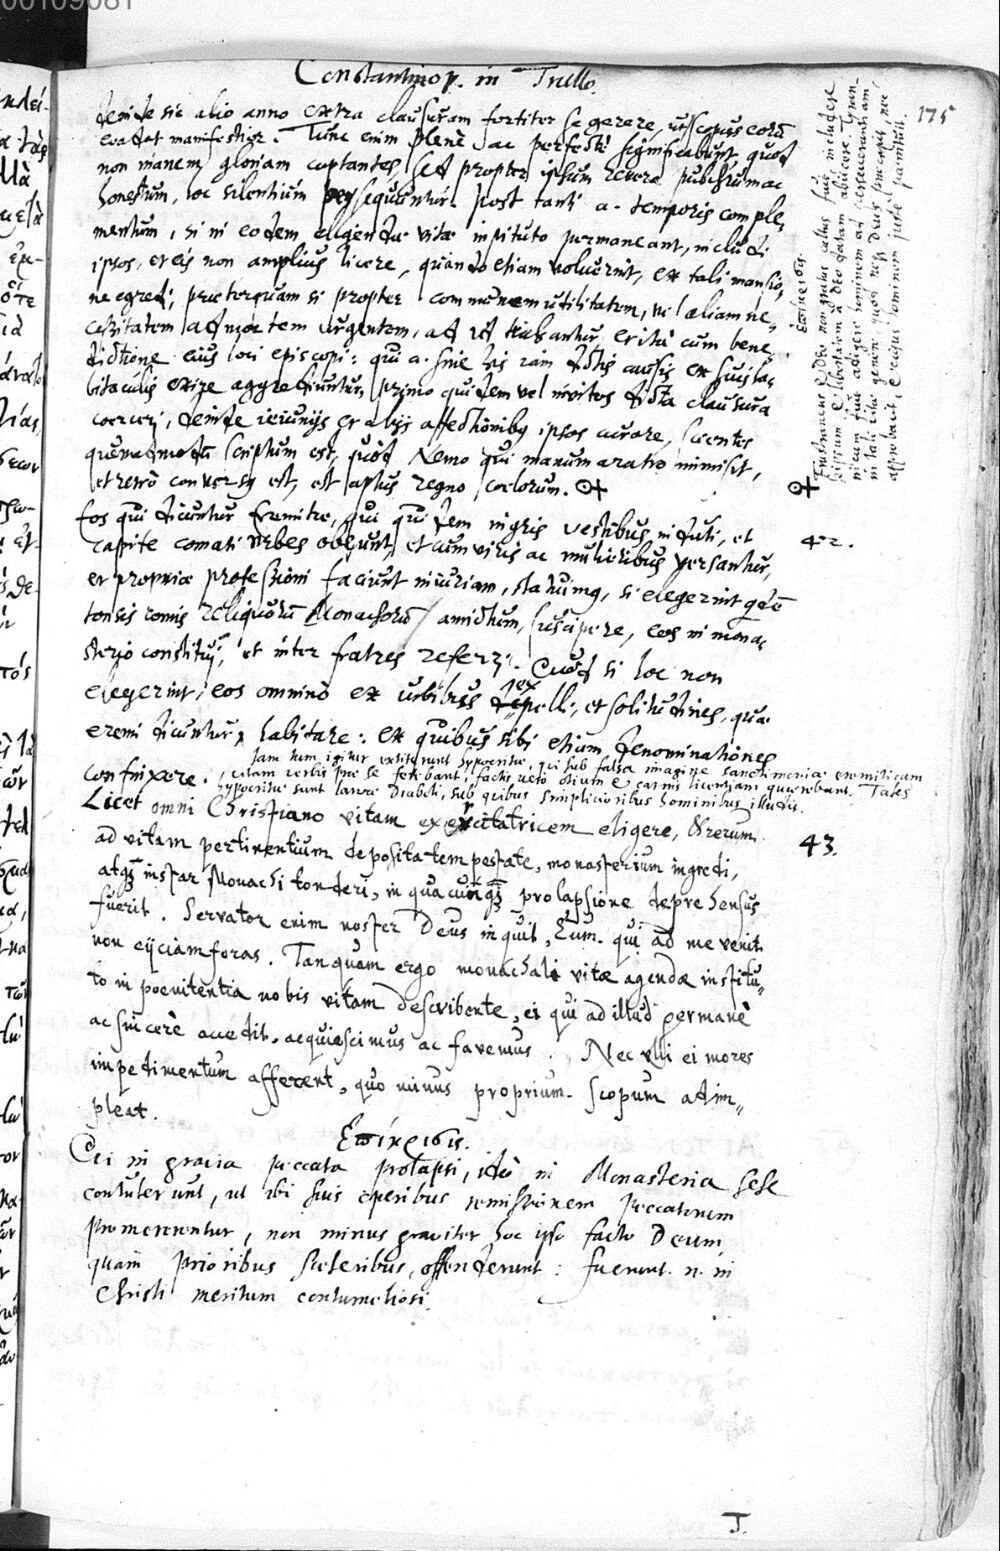 00109081
Constantinop. in Trullo.
175
deinde sic alio anno extra clausuram fortiter se gerere, ut scopus eorū
evadat manifestior. Tunc enim plenè ac perfectè significabunt, quod
non inanem gloriam captantes, sed propter ipsum revera pulchrum ac
honestum, hoc silentium persequuntur. Post tanti a. temporis comple„
mentum, si in eodem eligendae vitae instituto permaneant, includi
ipsos, et eis non amplius licere, quando etiam voluerint, ex tali mansio„
ne egredi, praeterquam si propter communem utilitatem, vel aliam ne„
cessitatem ad mortem urgentem, ad id trahantur, et ita cum bene„
dictione eius loci episcopi: qui a. sine his iam dictis causis ex suis ha„
bitaculis exire aggrediuntur, primo quidem vel invitos dicta clausura
coerceri, deinde ieiunijs et alijs afflictionibus ipsos curare, scientes
quemadmodū scriptum est, quòd Nemo qui manum aratro immisit,
et retrò conversus est, est aptus regno coelorum.
Ἐπίκρισις.
Eos qui dicuntur Eremitae, qui quidem nigris vestibus induti, et
42.
capite comati urbes obeunt, et cum viris ac mulieribus versantur,
et propriae professioni faciunt iniuriam, statuimus, si elegerint quidē
tonsis comis reliquorū Monachorū amictum suscipere, eos in mona„
sterio constitui, et inter fratres referri. Quod si hoc non
elegerint, eos omnino ex urbibus expelli, et solitudines, quae
eremi dicuntur, habitare: ex quibus sibi etiam denominationes
confinxere. Iam tum igitur extiterunt hypocritae, qui sub falsa imagine sanctimoniae eremiticam
vitam verbis prae se ferebant, factis verò otium et carnis licentiam quaerebant. Tales
hypocritae sunt larvae Diaboli, sub quibus simplicioribus hominibus illudit.
Licet omni Christiano vitam exercitatricem eligere, & rerum
43.
ad vitam pertinentium deposita tempestate, monasterium ingredi,
atq; instar Monachi tonderi, in quacunq; prolapsione deprehensus
fuerit. Servator enim noster Deus inquit, Eum qui ad me venit
non eijciam foras. Tanquam ergo monachali vitae agendae institu„
to in poenitentia nobis vitam describente, ei qui ad illud germanè
ac sincerè accedit, acquiescimus ac favemus. Nec ulli ei mores
impedimentum afferent, quo minus proprium scopum adim„
pleat.
Ἐπίκρισις.
Qui in gravia peccata prolapsi, ideò in Monasteria sese
contulerunt, ut ibi suis operibus remissionem peccatorum
promererentur, non minus graviter hoc ipso facto Deum,
quàm prioribus sceleribus, offenderunt: fuerunt n. in
Christi meritum contumeliosi.
T.